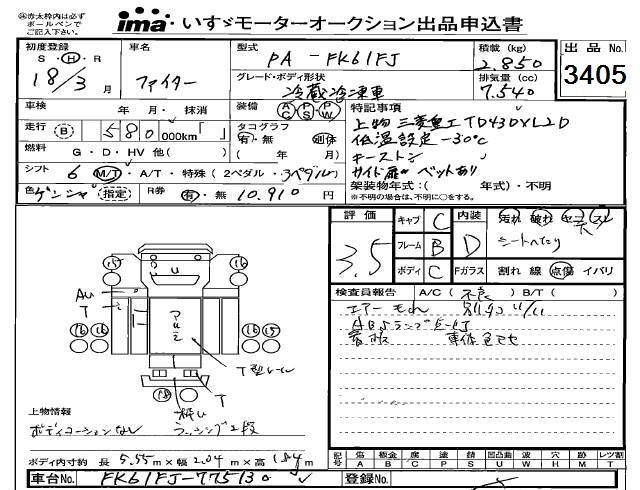 ㊟赤太枠内は必ず
ボールペンで
ご記入下さい。
ima いすゞモーターオークション出品申込書
初度登録 S・H・R 18/3月
車名 ファイター
型式 PA-FK61FJ
積載(kg) 2.850
出品No. 3405
グレード・ボディ形状 冷蔵冷凍車
排気量(cc) 7.540
車検 年 月・抹消
装備 AC PS PW
特記事項
走行 B 580 000km「 」
タコグラフ 有・無 別体
( 年 月)
上物 三菱重工 TD430XL2D
低温設定 -30℃
キーストン
サイド扉 ベットあり
燃料 G・D・HV 他( )
シフト 6 M/T・A/T・特殊(2ペダル・3ペダル)
架装物年式:( 年式)・不明
※不明の場合は、不明に○をする。
色 ゲンジャ 指定
R券 有・無 10.910円
評価 3.5
キャブ C
内装 D
汚れ 破れ ヤニ スレ 大
フレーム B
シートへたり
ボディ C
Fガラス 割れ 線 点傷 イバリ
検査員報告 A/C(不良) B/T( )
エアーもれ
ABSランプ
車体色アセ
15 16
U
Au
T
アルミ
16 16 16 15
T型レール
T
18
ラッシング2段
上物情報
ボディコーションなし
ボディ内寸約 長 5.55m×幅 2.04m×高
記号 傷 板金 腐 塗 錆 凹凸曲 波 穴 跡 レツ割
A B C P S U W H M T
車台No. FK61FJ-775130
登録No.